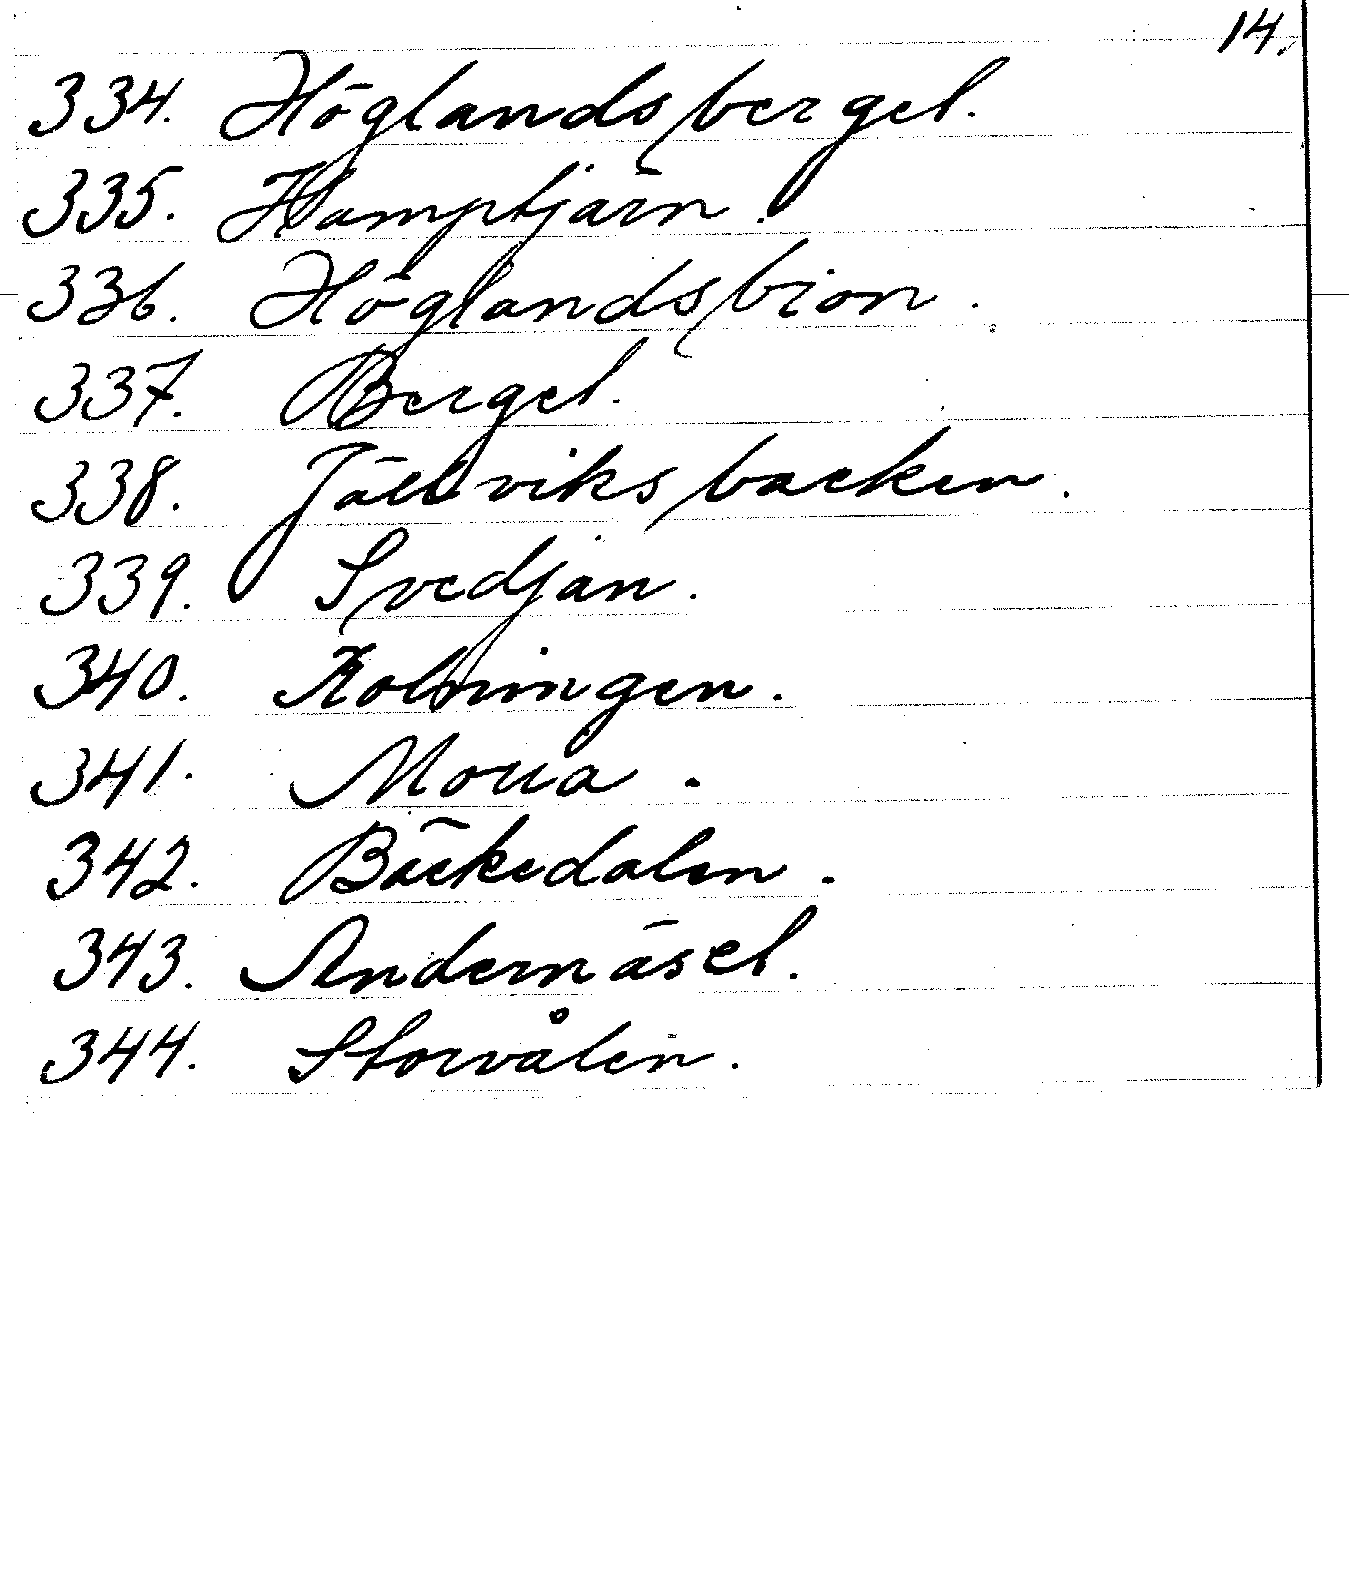 14.
334. Höglandsberget.
335. Hamptjärn.
336. Höglandsbion.
337. Berget.
338. Jättviksbacken.
339. Svedjan.
340. Kolningen.
341. Morra.
342. Bäckedalen.
343. Andernäset.
344. Storvålen.